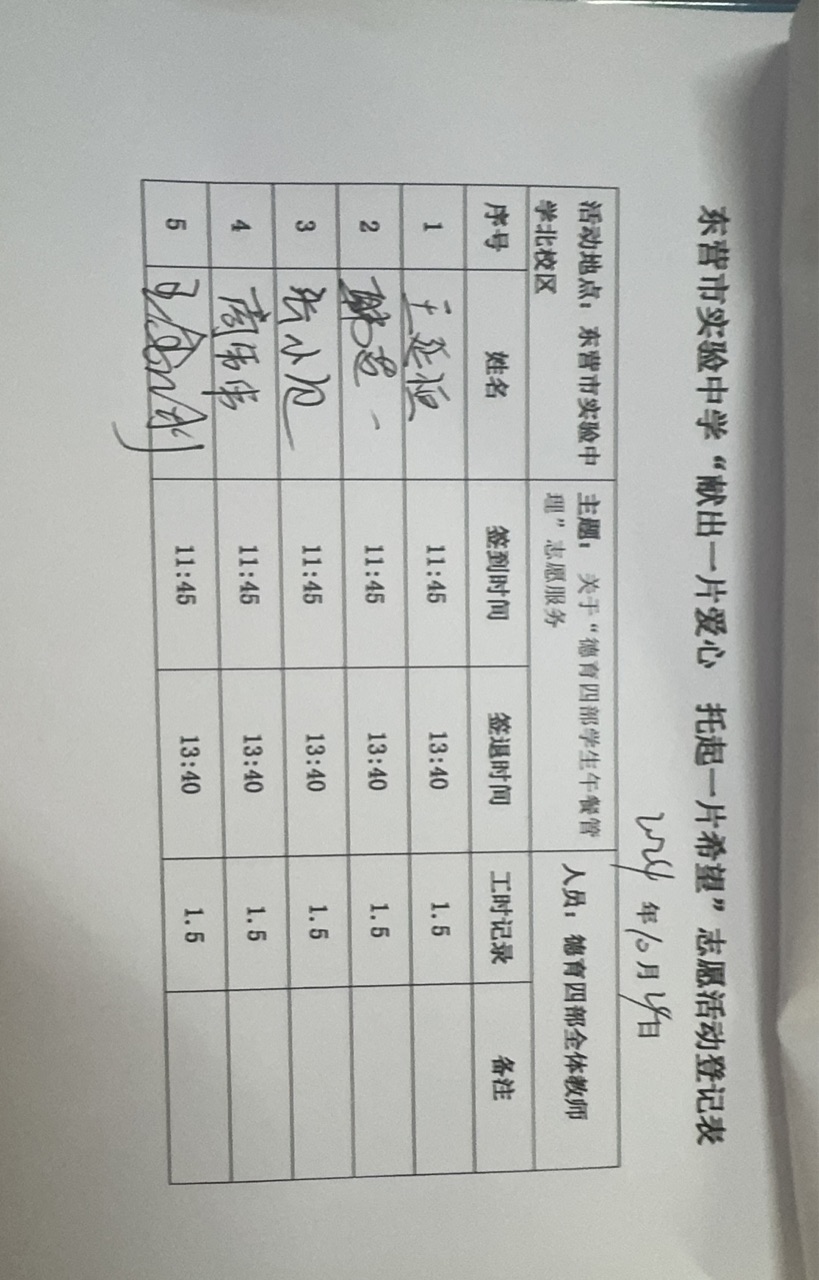 东营市实验中学“献出一片爱心 托起一片希望”志愿活动登记表
2024年10月24日
活动地点：东营市实验中
学北校区
主题：关于“德育四部学生午餐管
理”志愿服务
人员：德育四部全体教师
序号 姓名 签到时间 签退时间 工时记录 备注
1 王延恒 11:45 13:40 1.5
2 11:45 13:40 1.5
3 张小旭 11:45 13:40 1.5
4 11:45 13:40 1.5
5 11:45 13:40 1.5